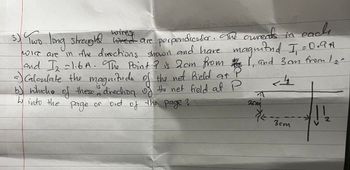 3) Two long straight wires are perpendicular. The currents in each
wire are in the directions shown and have magnitud I₁ = 0.9A
and I₂ = 1.6A. The Point P is 2cm from I, and 3cm from I₂.
a) Calculate the magnitude of the net field at P
b) which of these is direction of the net field at P
into the page or out of the page?
I₁
2cm
3cm
I₂